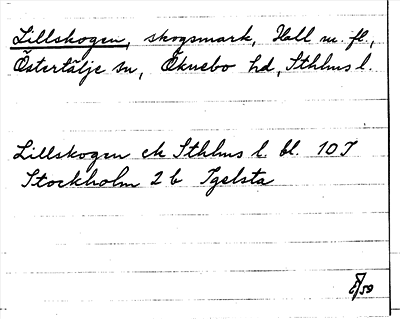 Lillskogen, skogsmark, Hall m. fl.,
Östertälje sn, Öknebo hd, Sthlms l.
Lillskogen ek Sthlms l. bl. 107
Stockholm 2 b Igelsta
/59